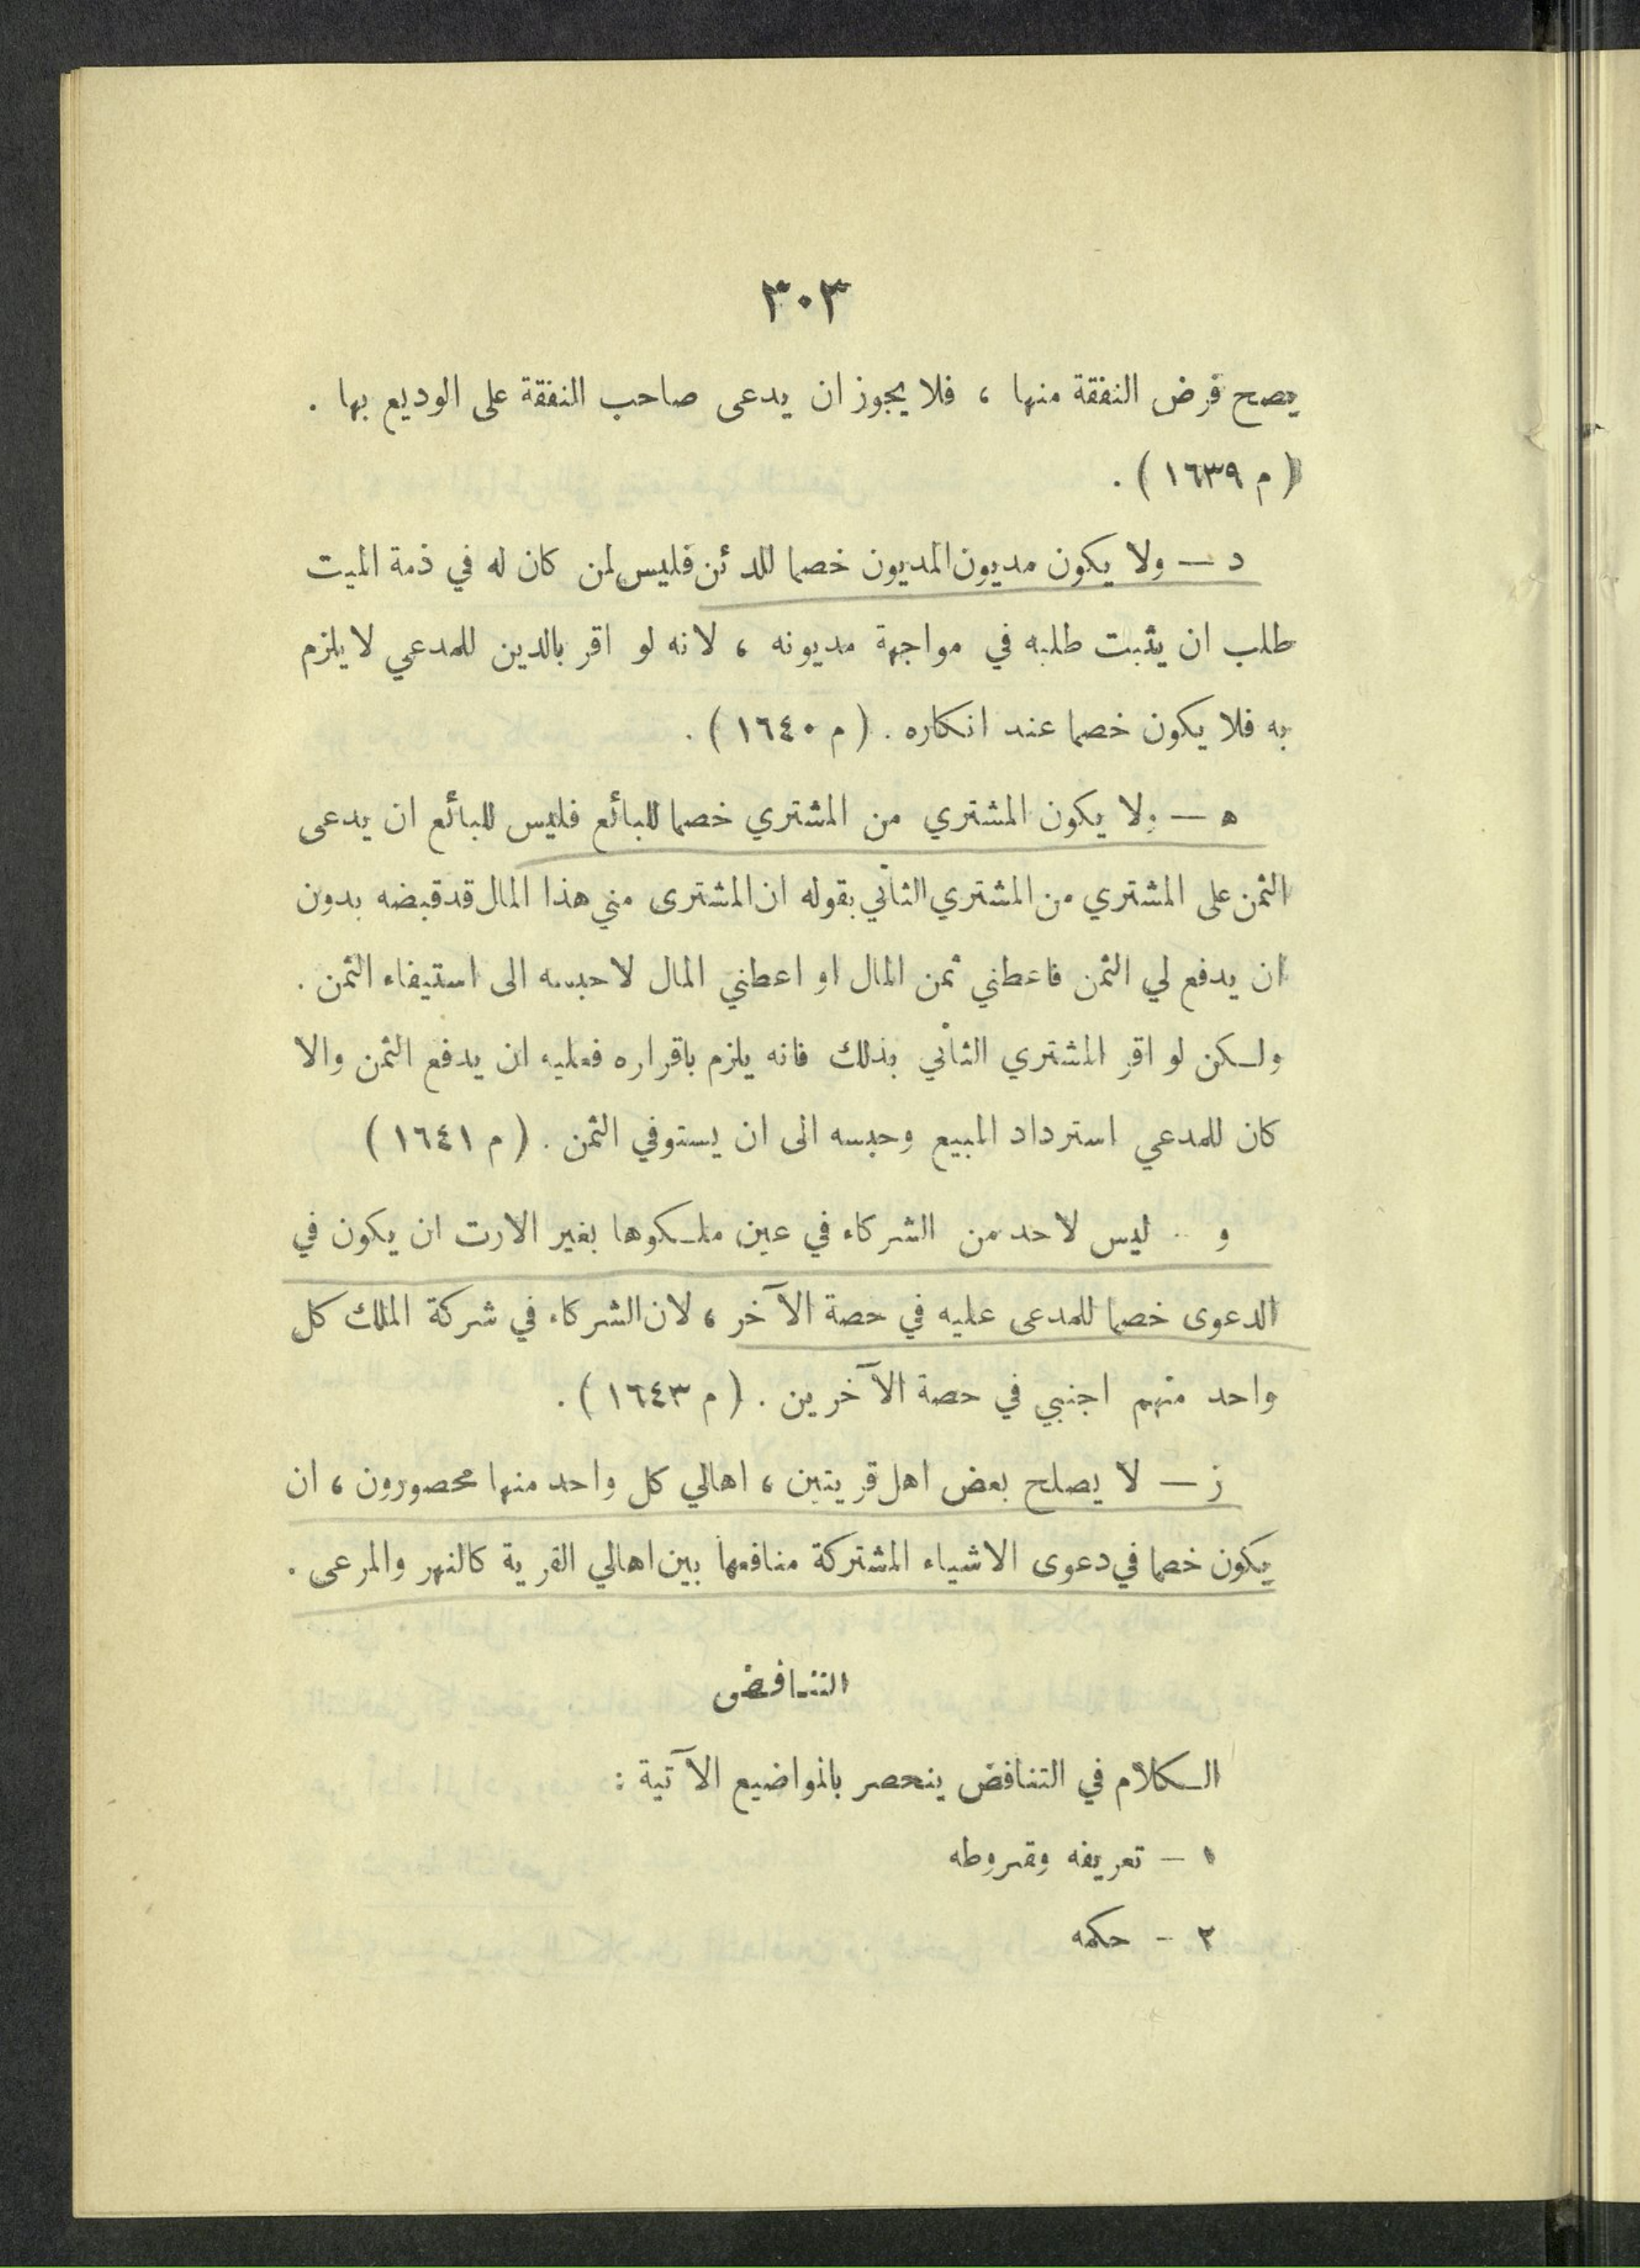 ٣٠٣
يصح فرض النفقة منها ، فلا يجوز ان يدعى صاحب النفقة على الوديع بها .
( م ١٦٣٩ ) .
د — ولا يكون مديون المديون خصما للدئن فليس لمن كان له في ذمة الميت
طلب ان يثبت طلبه في مواجهة مديونه ، لانه لو اقر بالدين للمدعي لا يلزم
به فلا يكون خصما عند انكاره . ( م ١٦٤٠ ) .
ه — ولا يكون المشتري من المشتري خصما للبائع فليس للبائع ان يدعى
الثمن على المشتري من المشتري الثاني بقوله ان المشترى مني هذا المال قد قبضه بدون
ان يدفع لي الثمن فاعطني ثمن المال او اعطني المال لاحبسه الى استيفاء الثمن .
ولكن لو اقر المشتري الثاني بذلك فانه يلزم باقراره فعليه ان يدفع الثمن والا
كان للمدعي استرداد المبيع وحبسه الى ان يستوفي الثمن . ( م ١٦٤١ )
و .. ليس لاحد من الشركاء في عين ملكوها بغير الارت ان يكون في
الدعوى خصما للمدعى عليه في حصة الآخر ، لان الشركاء في شركة الملك كل
واحد منهم اجنبي في حصة الآخرين . ( م ١٦٤٣ ) .
ز — لا يصلح بعض اهل قريتين ، اهالي كل واحد منها محصورون ، ان
يكون خصما في دعوى الاشياء المشتركة منافعها بين اهالي القرية كالنهر والمرعى .
التناقض
الكلام في التناقض ينحصر بالمواضيع الآتية :
١ — تعريفه وشروطه
٢ - حكمه